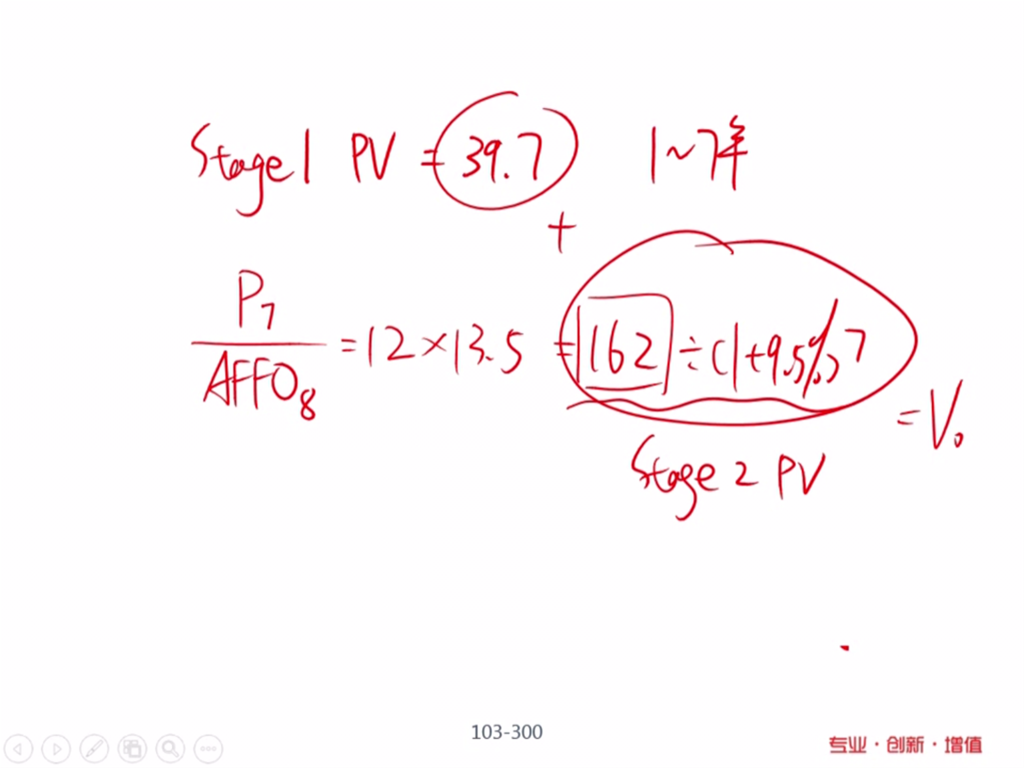 Stage1 PV = 39.7 1~7年
+
P7
AFFO8
=12×13.5 =162÷(1+9.5%)7
=V0
Stage 2 PV
103-300
专业·创新·增值